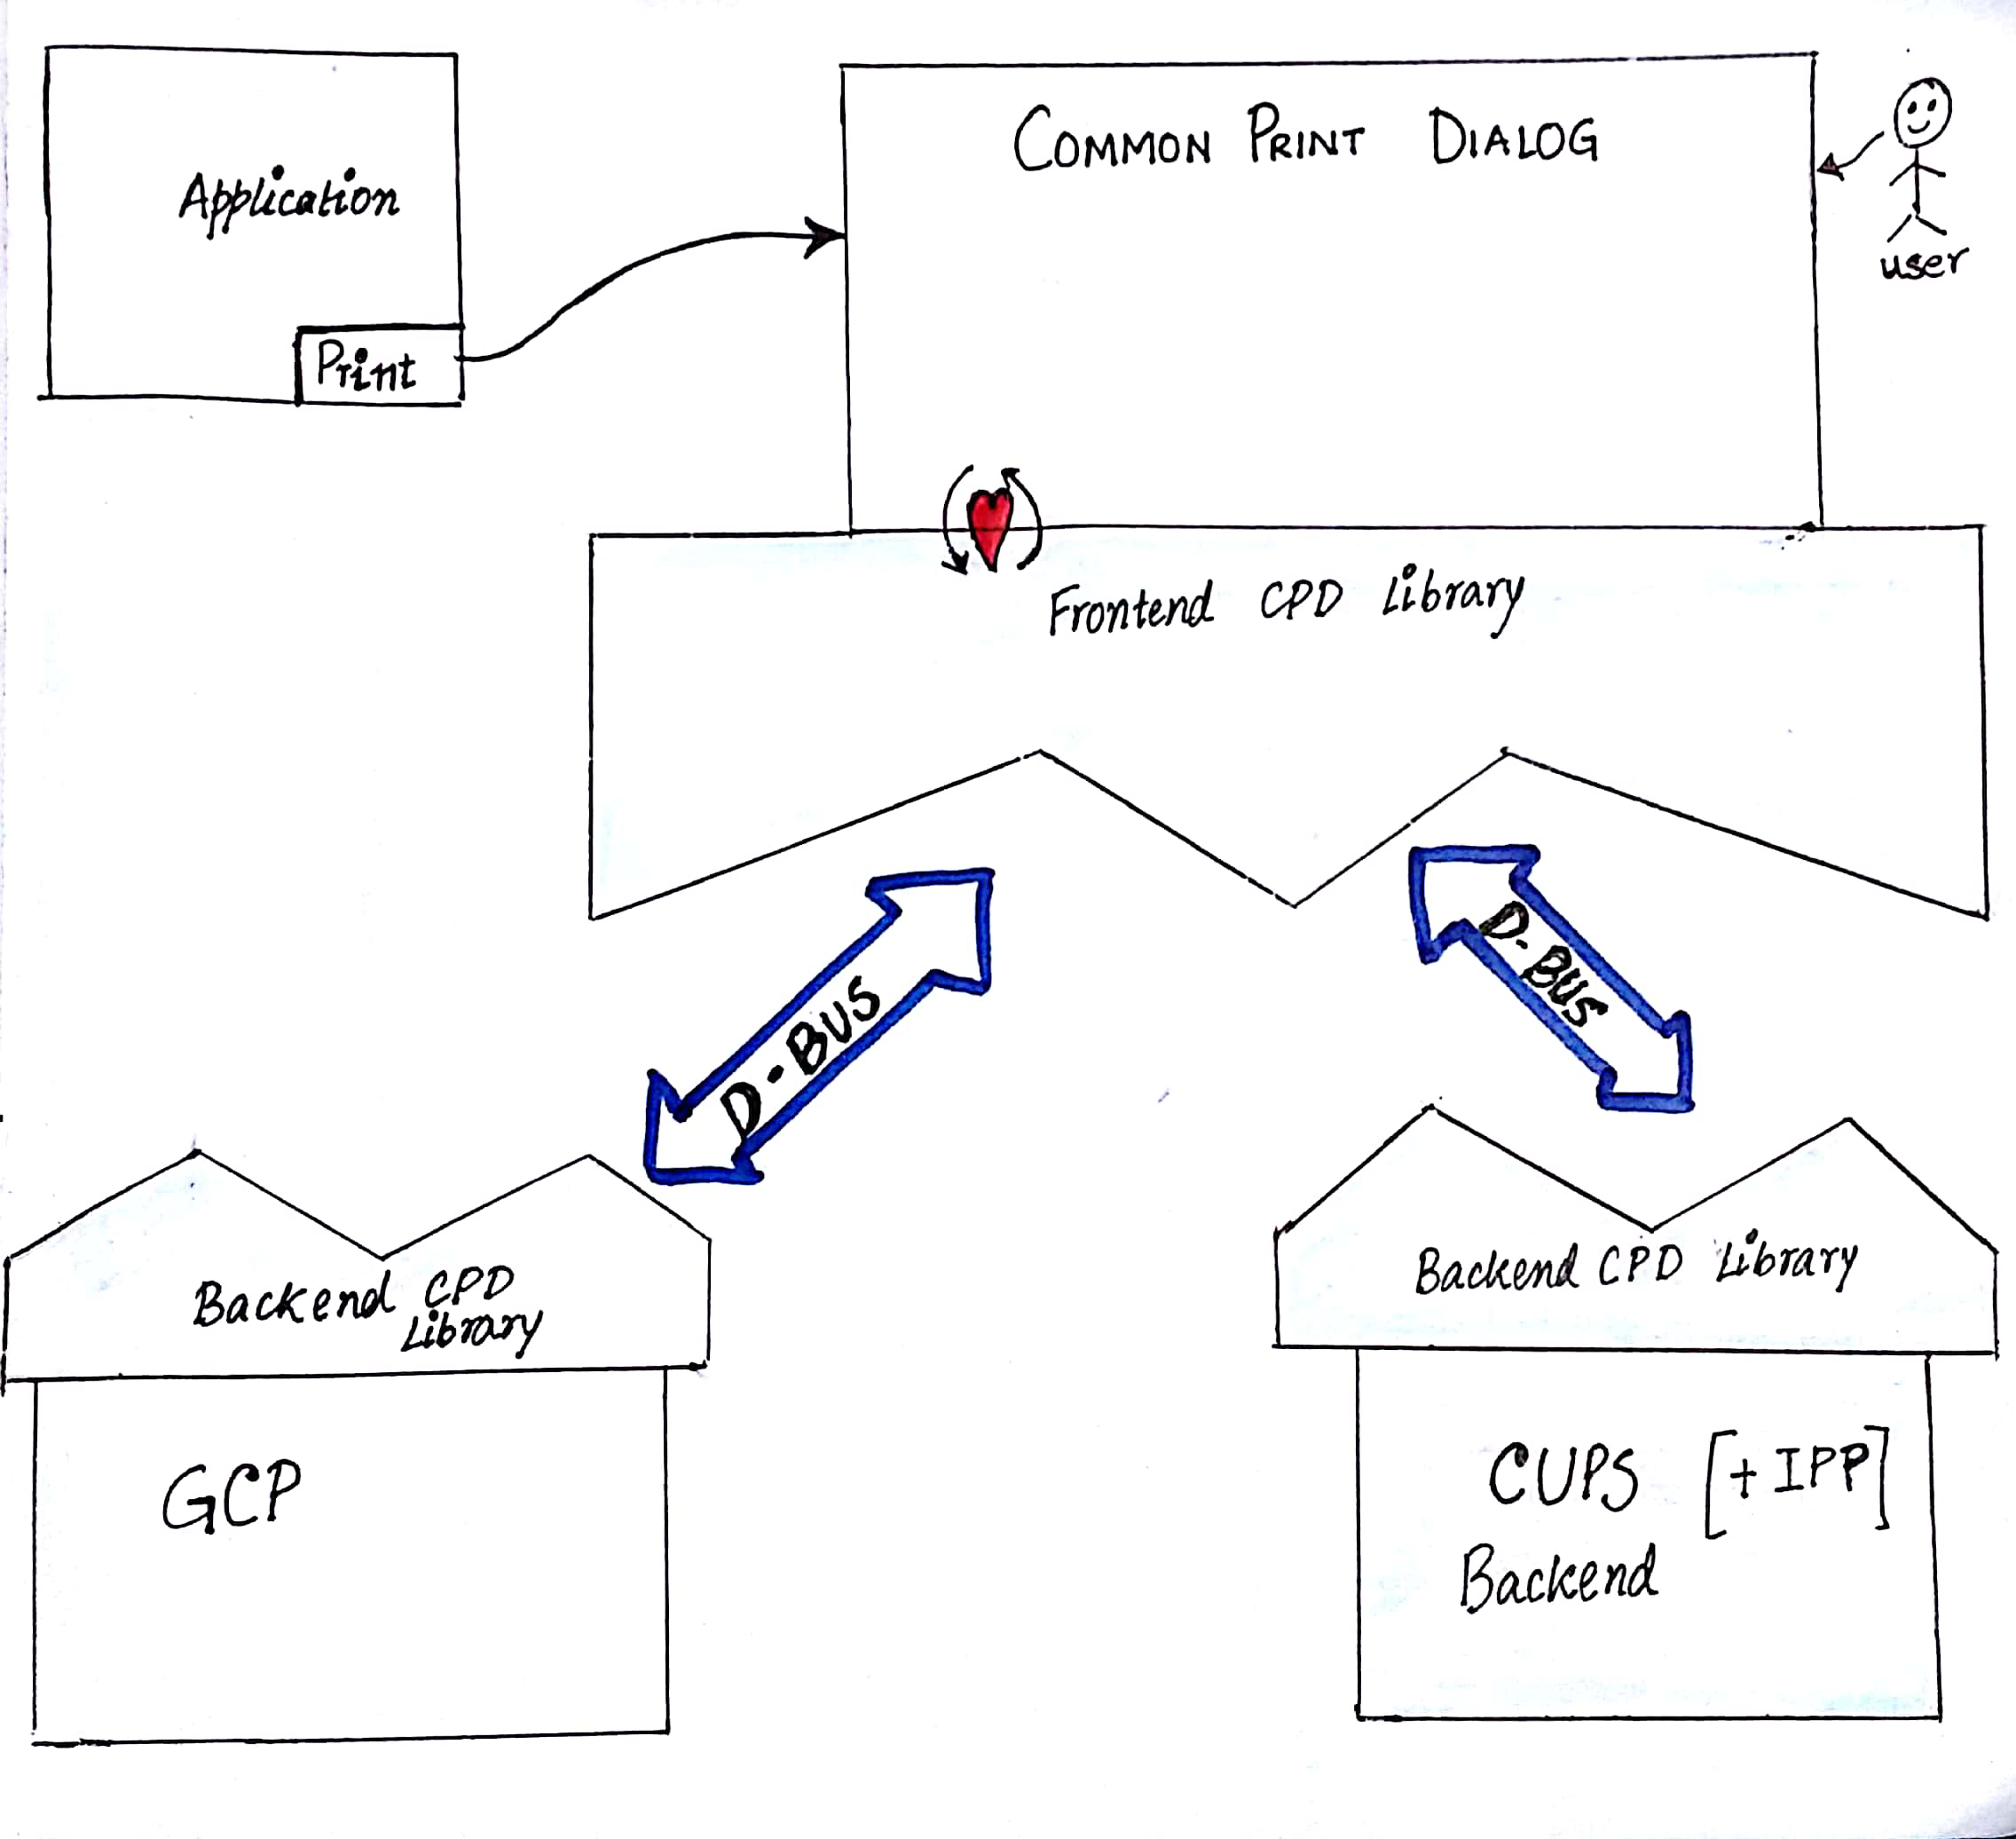 Application
Print
COMMON PRINT DIALOG
user
Frontend CPD Library
D-BUS
D-BUS
Backend CPD
Library
Backend CPD Library
GCP
CUPS [+ IPP]
Backend